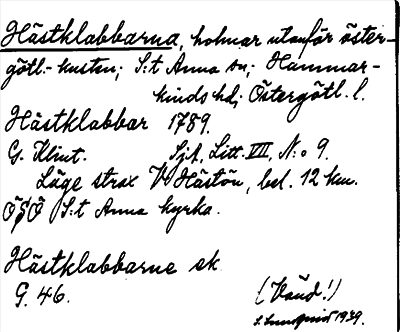 Hästklabbarna, holmar utanför öster-
götl.-kusten; S:t Anna sn; Hammar-
kinds hd; Östergötl. l.
Hästklabbar 1789.
G. Klint. Sjk, Litt. VII, N:o 9.
Läge strax V Hästön, bel. 12 km.
ÖSÖ S:t Anna kyrka.
Hästklabbarne ek
G. 46. (Vänd!)
S. Lundquist 1939.